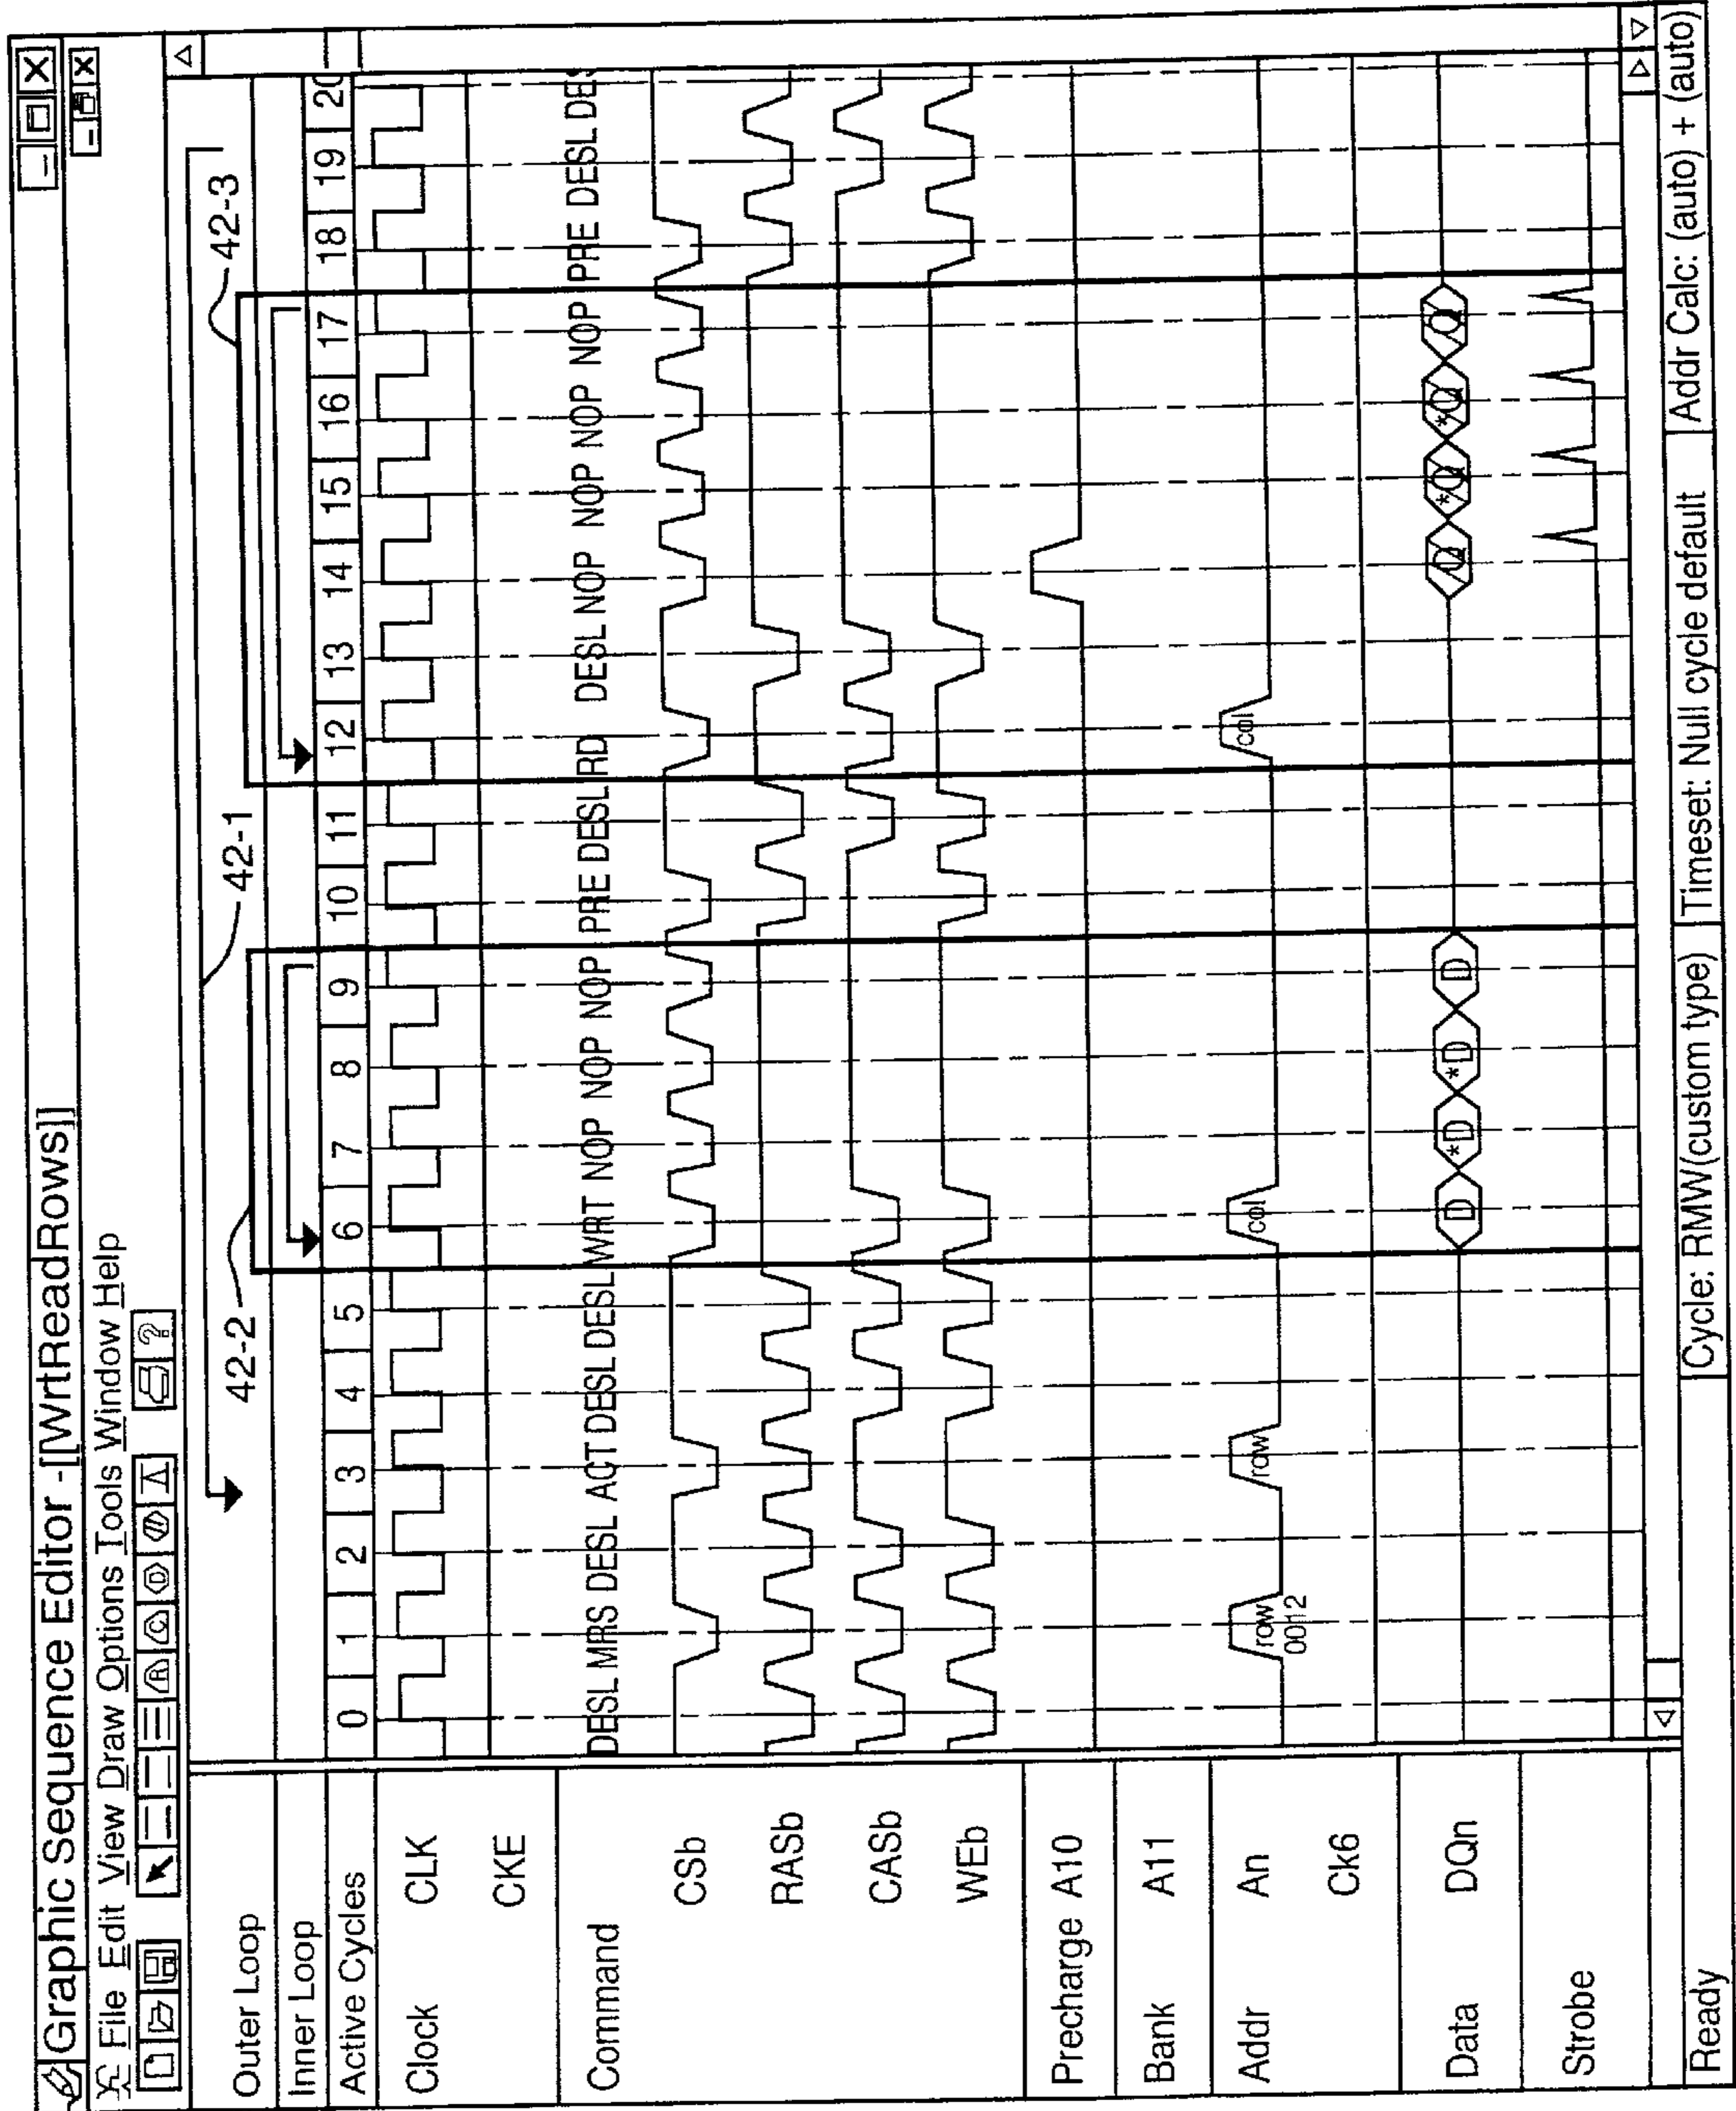 Graphic Sequence Editor -[[WrtReadRows]]
File Edit View Draw Options Tools Window Help
R C D ?
42-1
42-2
42-3
Outer Loop
Inner Loop
Active Cycles 0 1 2 3 4 5 6 7 8 9 10 11 12 13 14 15 16 17 18 19 20
Clock CLK
CKE
Command DESL MRS DESL ACT DESL DESL WRT NOP NOP NOP PRE DESL RD DESL NOP NOP NOP NOP PRE DESL DES
CSb
RASb
CASb
WEb
Precharge A10
Bank A11
Addr An row row col col
0012
Ck6
Data DQn D *D *D D Q *Q *Q Q
Strobe
Ready Cycle: RMW(custom type) Timeset: Null cycle default Addr Calc: (auto) + (auto)